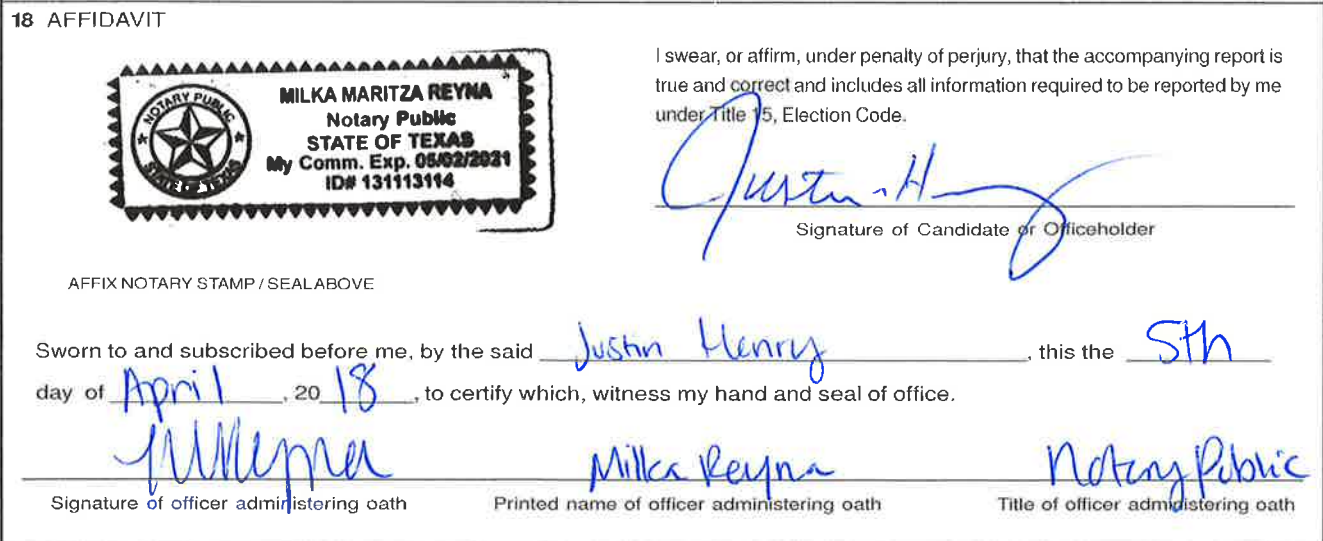 18 AFFIDAVIT
NOTARY PUBLIC
STATE OF TEXAS
MILKA MARITZA REYNA
Notary Public
STATE OF TEXAS
My Comm. Exp. 05/02/2021
ID# 131113114
I swear, or affirm, under penalty of perjury, that the accompanying report is
true and correct and includes all information required to be reported by me
under Title 15, Election Code.
Justin H
Signature of Candidate or Officeholder
AFFIX NOTARY STAMP / SEALABOVE
Sworn to and subscribed before me, by the said Justin Henry, this the 5th
day of April, 2018, to certify which, witness my hand and seal of office.
MReyna Milka Reyna Notary Public
Signature of officer administering oath Printed name of officer administering oath Title of officer administering oath